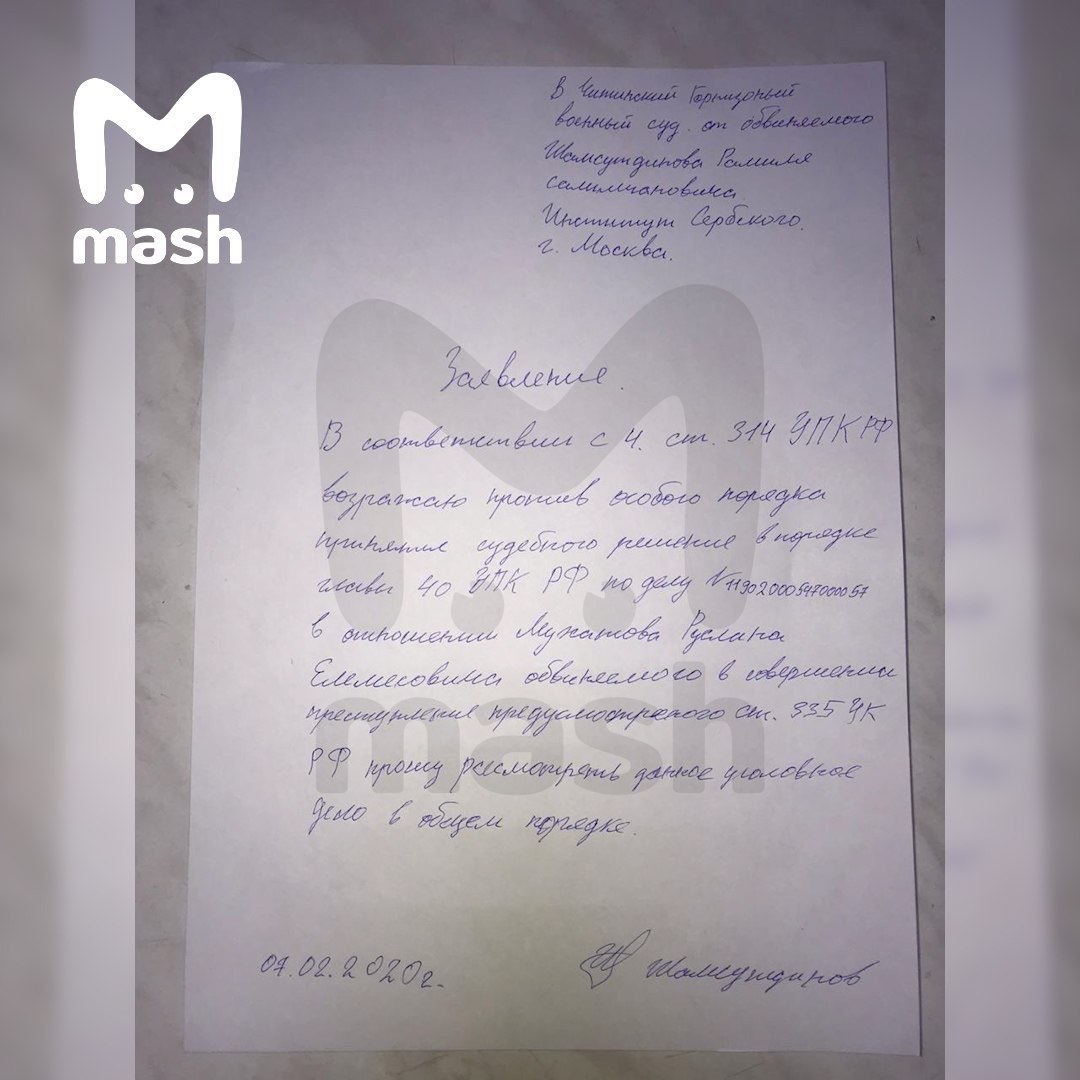 mash
В Читинский Гарнизонный
военный суд. от обвиняемого
Шамсутдинова Рамиля
салимжановича
Институт Сербского.
г. Москва.
Заявление.
В соответствии с Ч. ст. 314 УПК РФ
возражаю против особого порядка
принятия судебного решение в порядке
главы 40 УПК РФ по делу №11902000597000057
в отношении Мухатова Руслана
Елемесовича обвиняемого в совершении
преступление предусмотреного ст. 335 УК
РФ прошу рассмотреть данное уголовное
дело в общем порядке.
mash
07.02.2020г.
Шамсутдинов